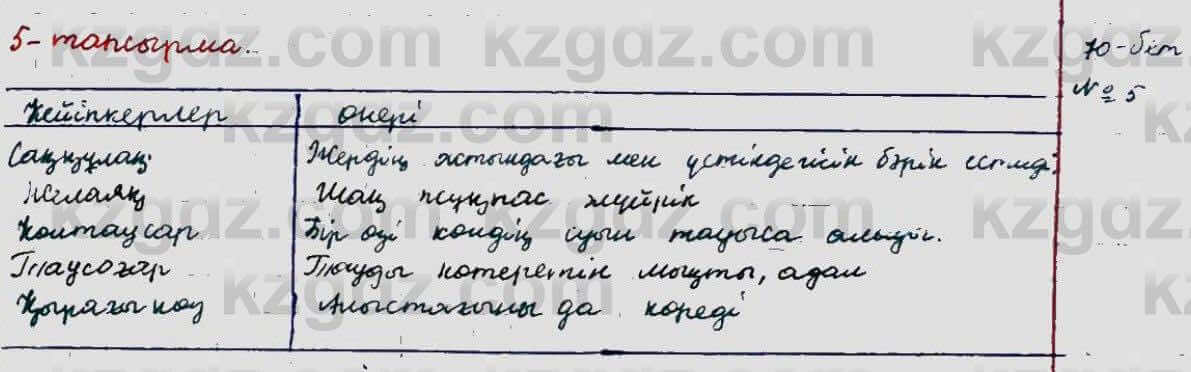 5-тапсырма.
70-бет
№ 5
Кейіпкерлер өнері
Саққұлақ Жердің астындағы мен үстіндегісін бәрін естиді.
Желаяқ Шаң жұқпас жүйрік
Көлтаусар Бір өзі көлдің суын тауыса алады.
Таусоғар Тауды көтеретін мықты, адам
Қырағы көз Алыстағыны да көреді
kzgdz.com